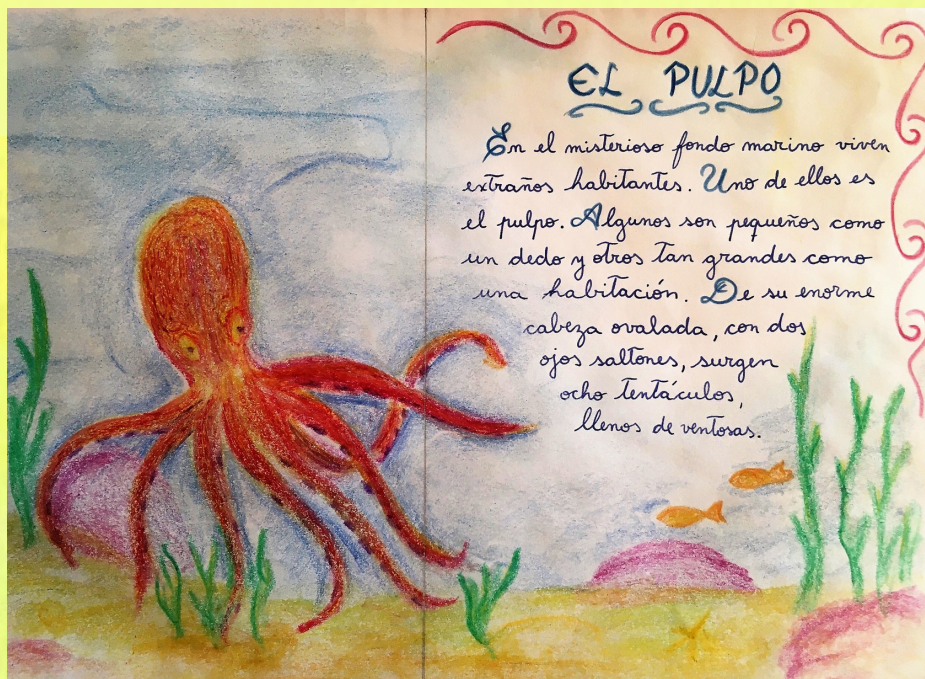 EL PULPO
En el misterioso fondo marino viven
extraños habitantes. Uno de ellos es
el pulpo. Algunos son pequeños como
un dedo y otros tan grandes como
una habitación. De su enorme
cabeza ovalada, con dos
ojos saltones, surgen
ocho tentáculos,
llenos de ventosas.